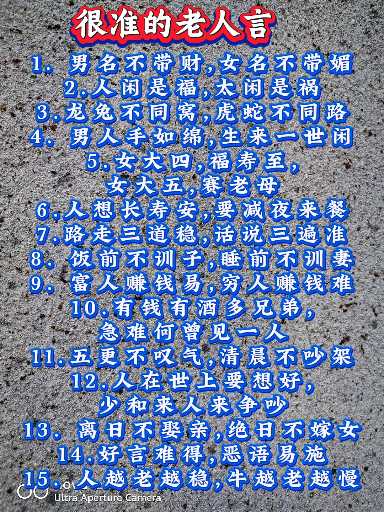 很准的老人言
1. 男名不带财,女名不带媚
2.人闲是福,太闲是祸
3.龙兔不同窝,虎蛇不同路
4. 男人手如绵,生来一世闲
5.女大四,福寿至,
女大五,赛老母
6.人想长寿安,要减夜来餐
7.路走三道稳,话说三遍准
8. 饭前不训子,睡前不训妻
9. 富人赚钱易,穷人赚钱难
10.有钱有酒多兄弟,
急难何曾见一人
11.五更不叹气,清晨不吵架
12.人在世上要想好,
少和来人来争吵
13. 离日不娶亲,绝日不嫁女
14.好言难得,恶语易施
15. 人越老越稳,牛越老越慢
Ultra Aperture Camera